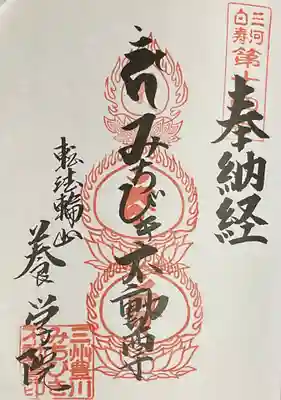 三河
白寿
第十
奉納経
みちびき不動尊
転法輪山
養学院
三州豊川
みちびき